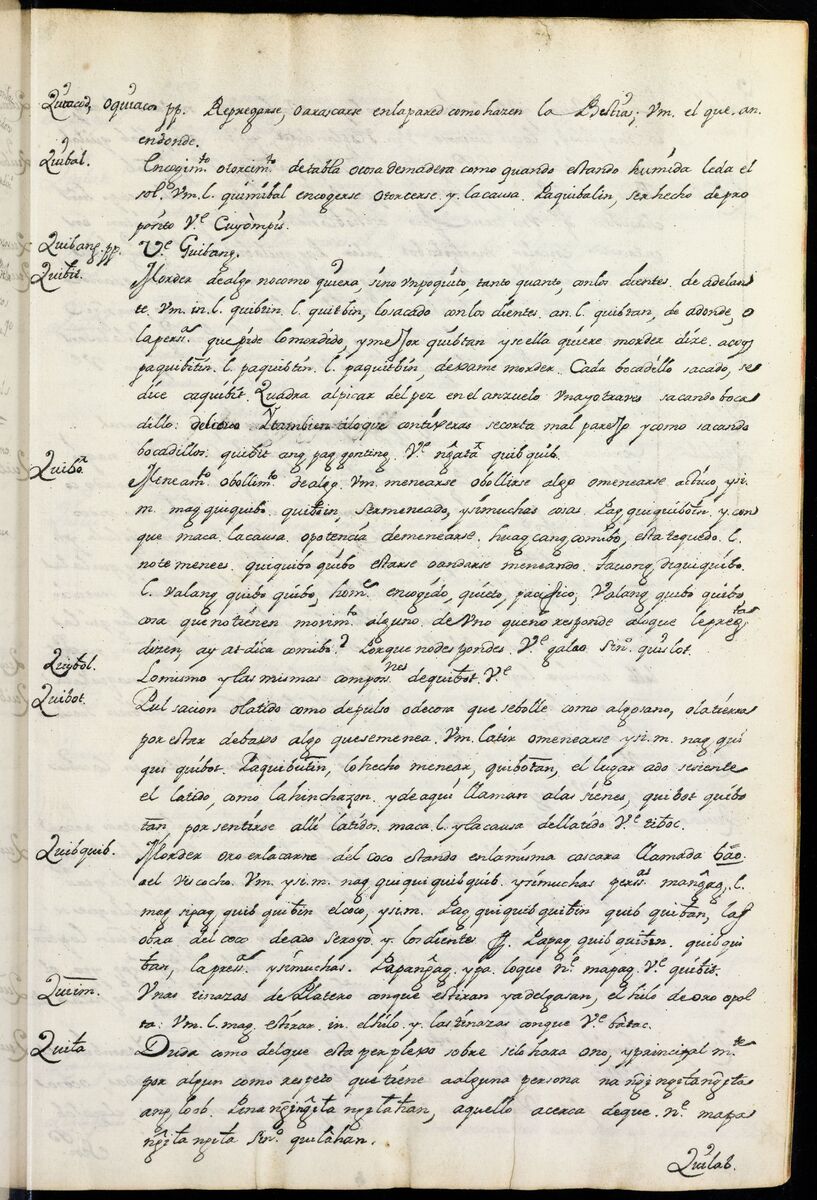 Quiacod, o quiacos pp. Repregarse, o arascarse enlapared como hazen la Bestias; Vm. el que. an.
endonde.
Quibal. Encogim.to otorcim.to detabla ocosa demadera como quando estando humida leda el
sol.o Vm. l. quimibal encogerse otorcerse. y. lacausa. Paquibalin, ser hecho depro
posito V.e Cuyompis.
Quibang. pp. V.e Guibang.
Quibit. Morder dealgo nocomo quiera, sino vnpoquito, tanto quanto, conlos dientes. de adelan
te. Vm. in. l. quibtin. l. quitbin, losacado conlos dientes. an. l. quibtan, de adonde, o
lapers.a que pide lomordido, ymejor quibtan ysiella quiere morder dize. acoy
paquibitin. l. paquibtin. l. paquitbin dexame morder. Cada bocadillo sacado, se
dice caquibit. Quadra alpicar del pez en el anzuelo. vnayotraves sacando boca
dillo: Ytambien aloque contixeras secorta mal parejo ycomo sacando
bocadillos. quibit ang pag gonting. V.e ngata quibquib.
Quibo. Meneam.to obollim.to dealgo. Vm. menearse obollirse algo omenearse activo, ysi.
m. mag quiquibo. quiboin, sermeneado, ysimuchas cosas. Pag quiquiboin. y. con
que maca. lacausa opotencia demenearse. huag cang comibo, esta tequedo. l.
notemenees. quiquibo quibo estarse oandarse meneando. Tauong diquiquibo.
l. Valang quibo quibo, hom.e encogido, quieto, pacifico, Valang quibo quibo
cosa que notienen movim.to alguno. de Vno queno responde aloque lepreg.tas
dizen, ay at dica comibo? Porque nodesrespondes. V.e galao Sin.o quislot.
Quiybol. Lomismo y las mismas compos.nes dequibot. V.e
Quibot. Pulsacion olatido como depulso odecosa que sebolle como algosano, olatierra
por estar debaxo algo quesemenea. Vm. latir omenearse ysi. m. nag qui
qui quibot. Paquibutin, lo hecho menear, quibotan, el lugar ado sesiente
el latido, como lahinchazon. ydeaqui llaman alas sienes, quibot quibo
tan por sentirse alli latidos. maca. l. ylacausa dellatido V.e tiboc.
Quibquib. Morder oroerlacarne del coco estando enlamisma cascara llamada bao.
oel viscocho. Vm. ysi. m. nag qui qui quib quib. ysimuchas pers.as mangag, l.
mag sipag quib quibin elcoco, ysi. m. Pag qui quib quibin quib quiban, las
obra del coco deado seroyo. y. los dientes. Papag quib quibin. quib qui
ban, lapers.a ysimuchas. Papangag. ypa. loque N.o mapag. V.e quibit.
Quiim. Vnas tinazas de Platero conque estiran yadelgasan, el hilo de oro opla
ta: Vm. l. mag. estirar. in. elhilo. y. las tinazas conque V.e batac.
Quita Duda como delque esta perplexo sobre silohara ono, yprincipal m.te
por algun como respeto que tiene aalguna persona na ngingitangita
ang loob. Pina ngingita ngitahan, aquello acerca deque. N.o mapa
ngita ngita Sin.o quilahan.
Quilab.